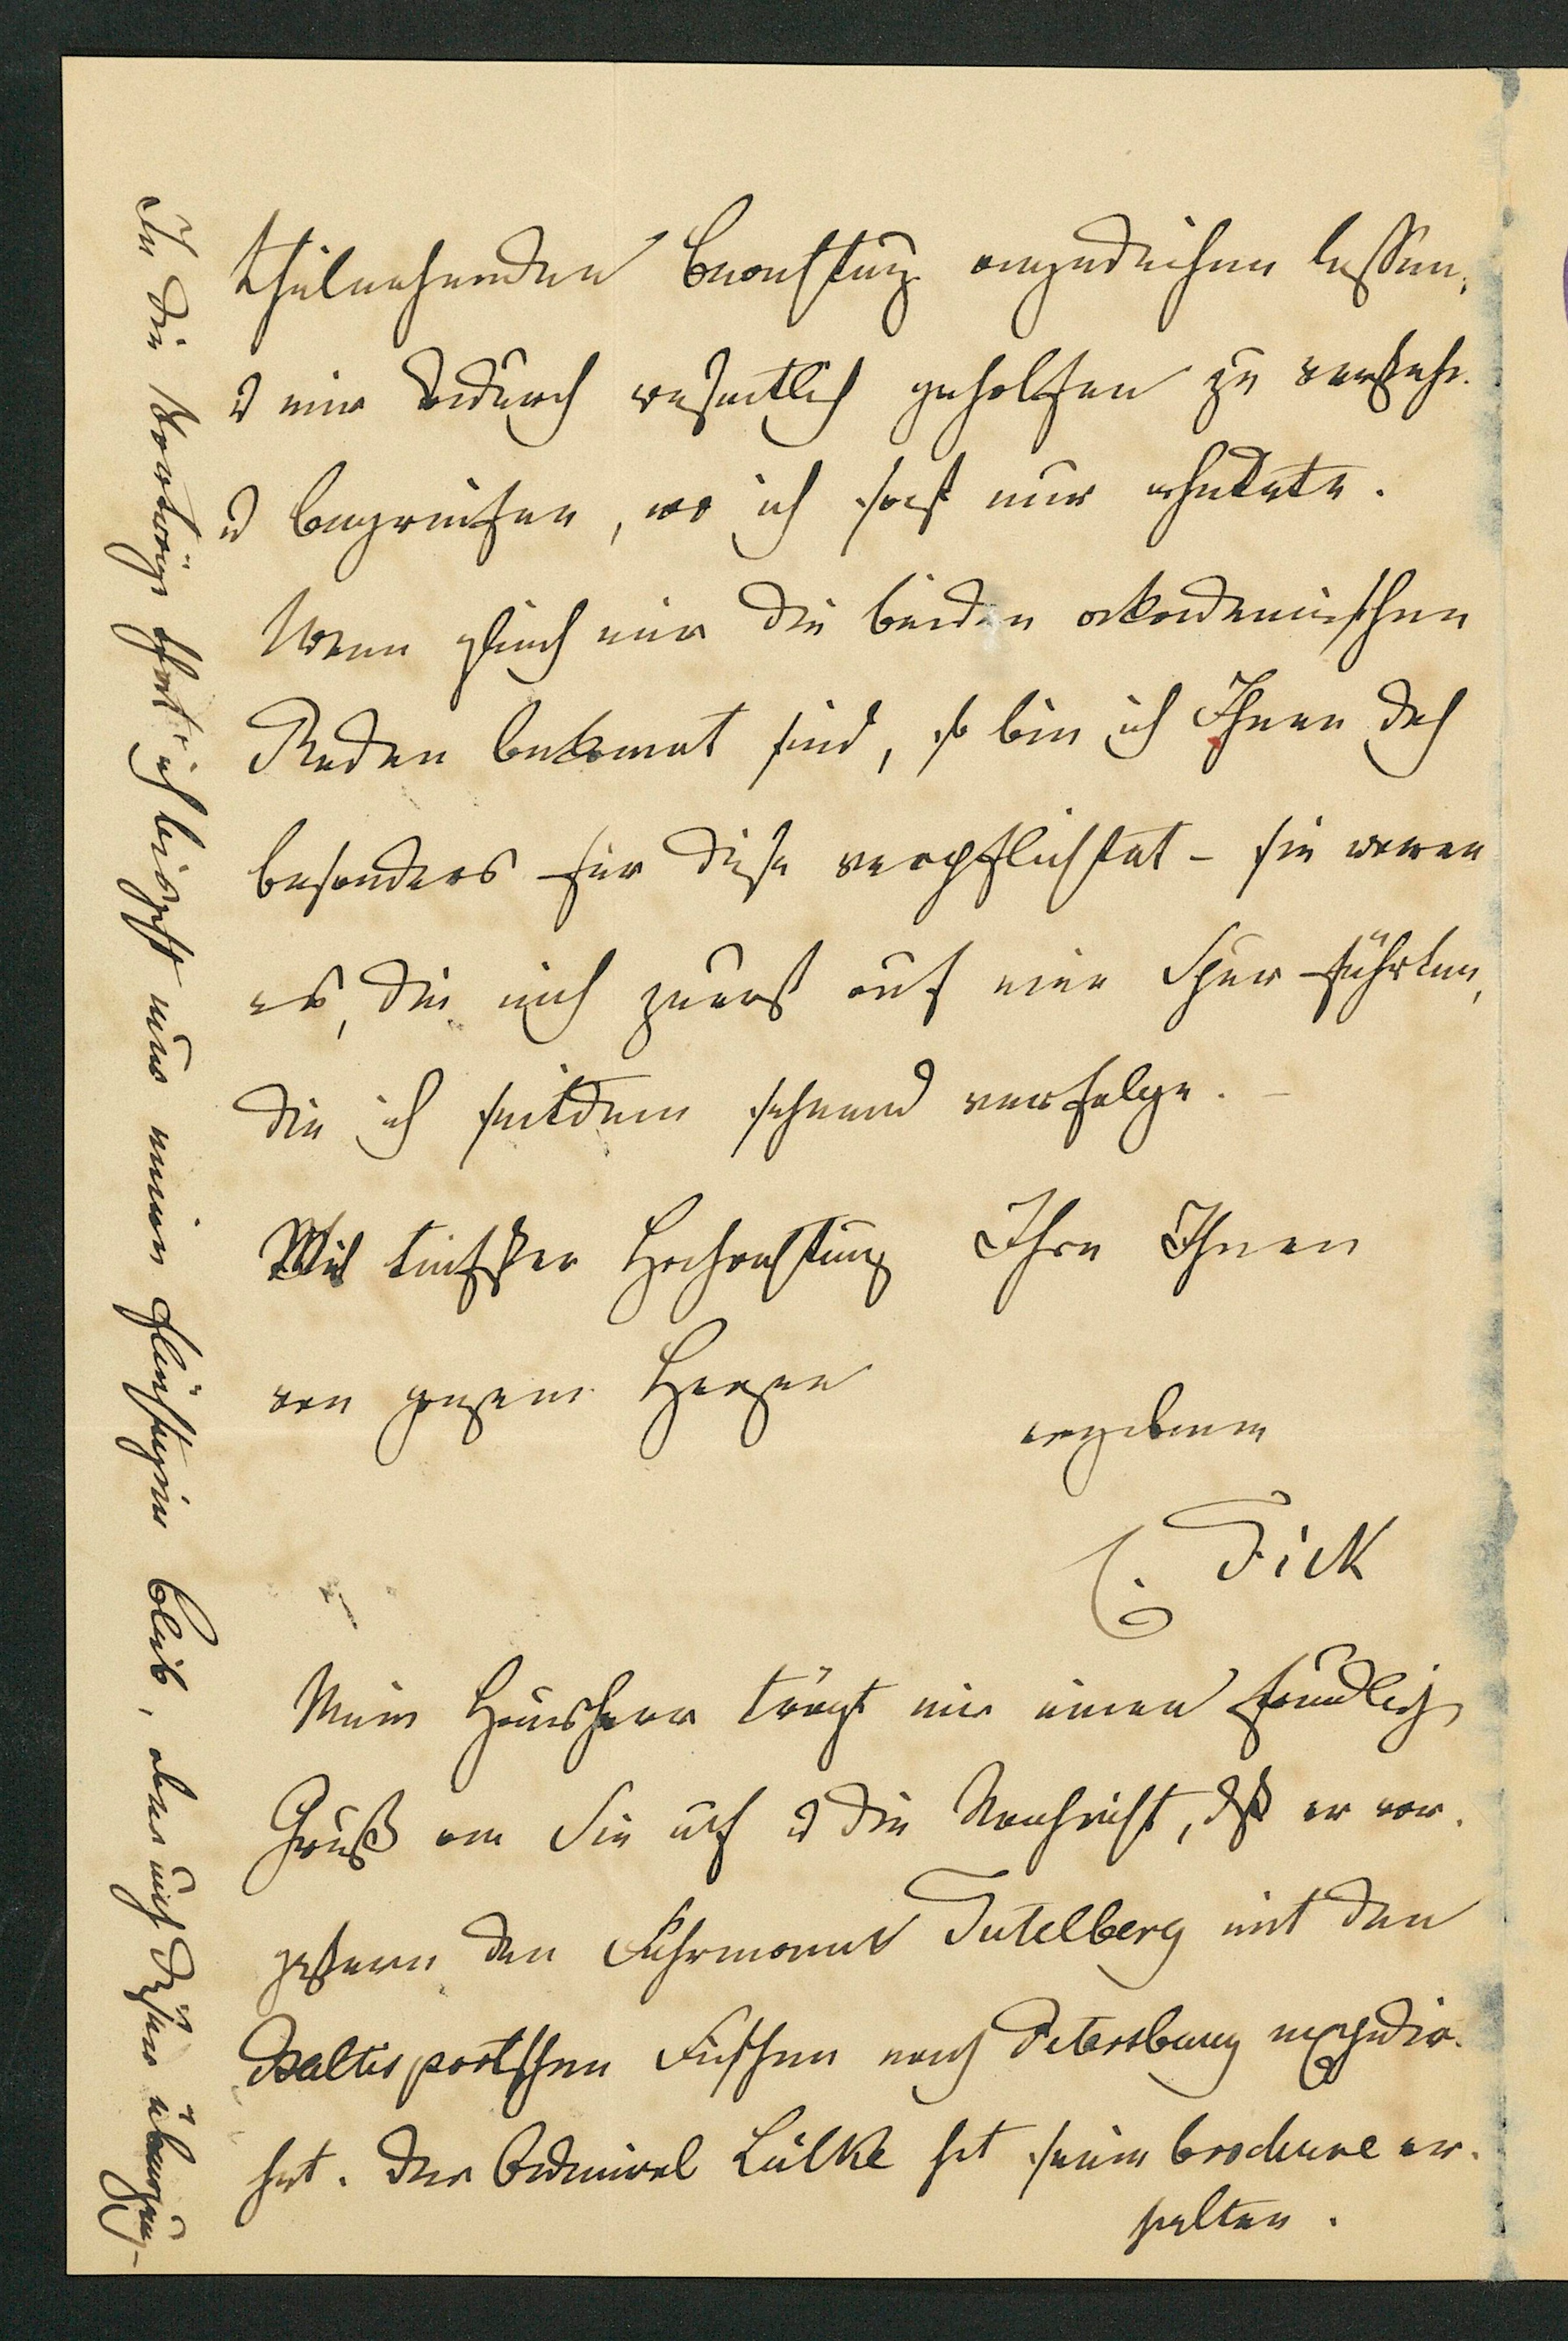 theilnehmenden Beachtung angedeihen lassen,
u mir dadurch wesentlich geholfen zu versteh.
u begreifen, wo ich sonst nur ahndete.
Wenn gleich mir die beiden akademischen
Reden bekannt sind, so bin ich Ihnen doch
besonders für diese verpflichtet – sie waren
es, die mich zuerst auf eine Spur führten,
die ich seitdem sehend verfolge. –
Mit tiefster Hochachtung Ihre Ihnen
von ganzem Herzen
ergebene
C. Fick
Mein Hausherr trägt mir einen freundlich
Gruß an Sie auf u die Nachricht, daß er vor.
gestern den Fuhrmann Tutelberg mit den
Baltisportschen Fischen nach Petersburg expedir.
hat. Der Admiral Lütke hat seine brochure er.
halten.
In die Vorträge hab' ich bis jetzt nur einen flüchtigen Blick, aber mich dessen überzeug–